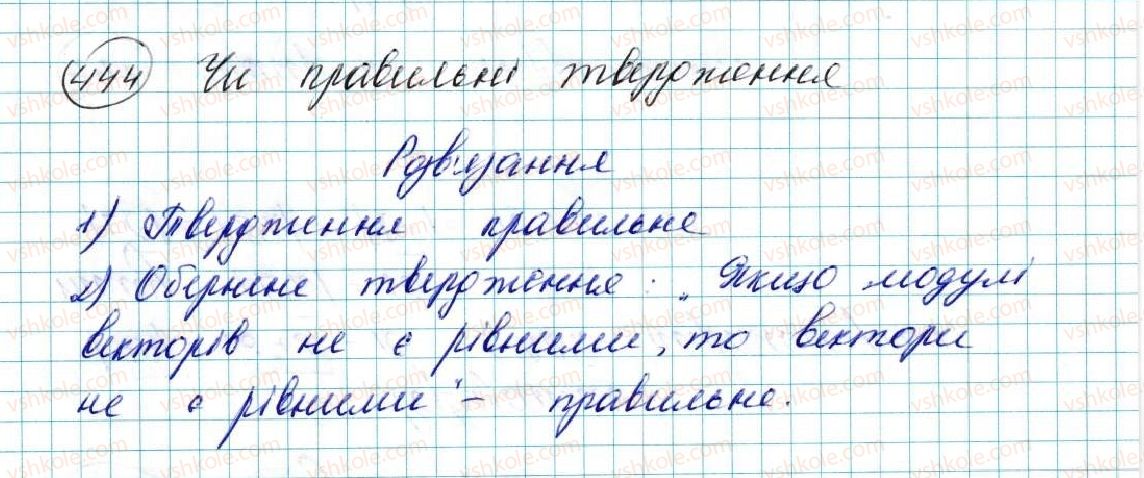 444 Чи правильні твердження
Розв'язання
1) Твердження правильне
2) Обернене твердження: „Якщо модулі
векторів не є рівними, то вектори
не є рівними" – правильне.